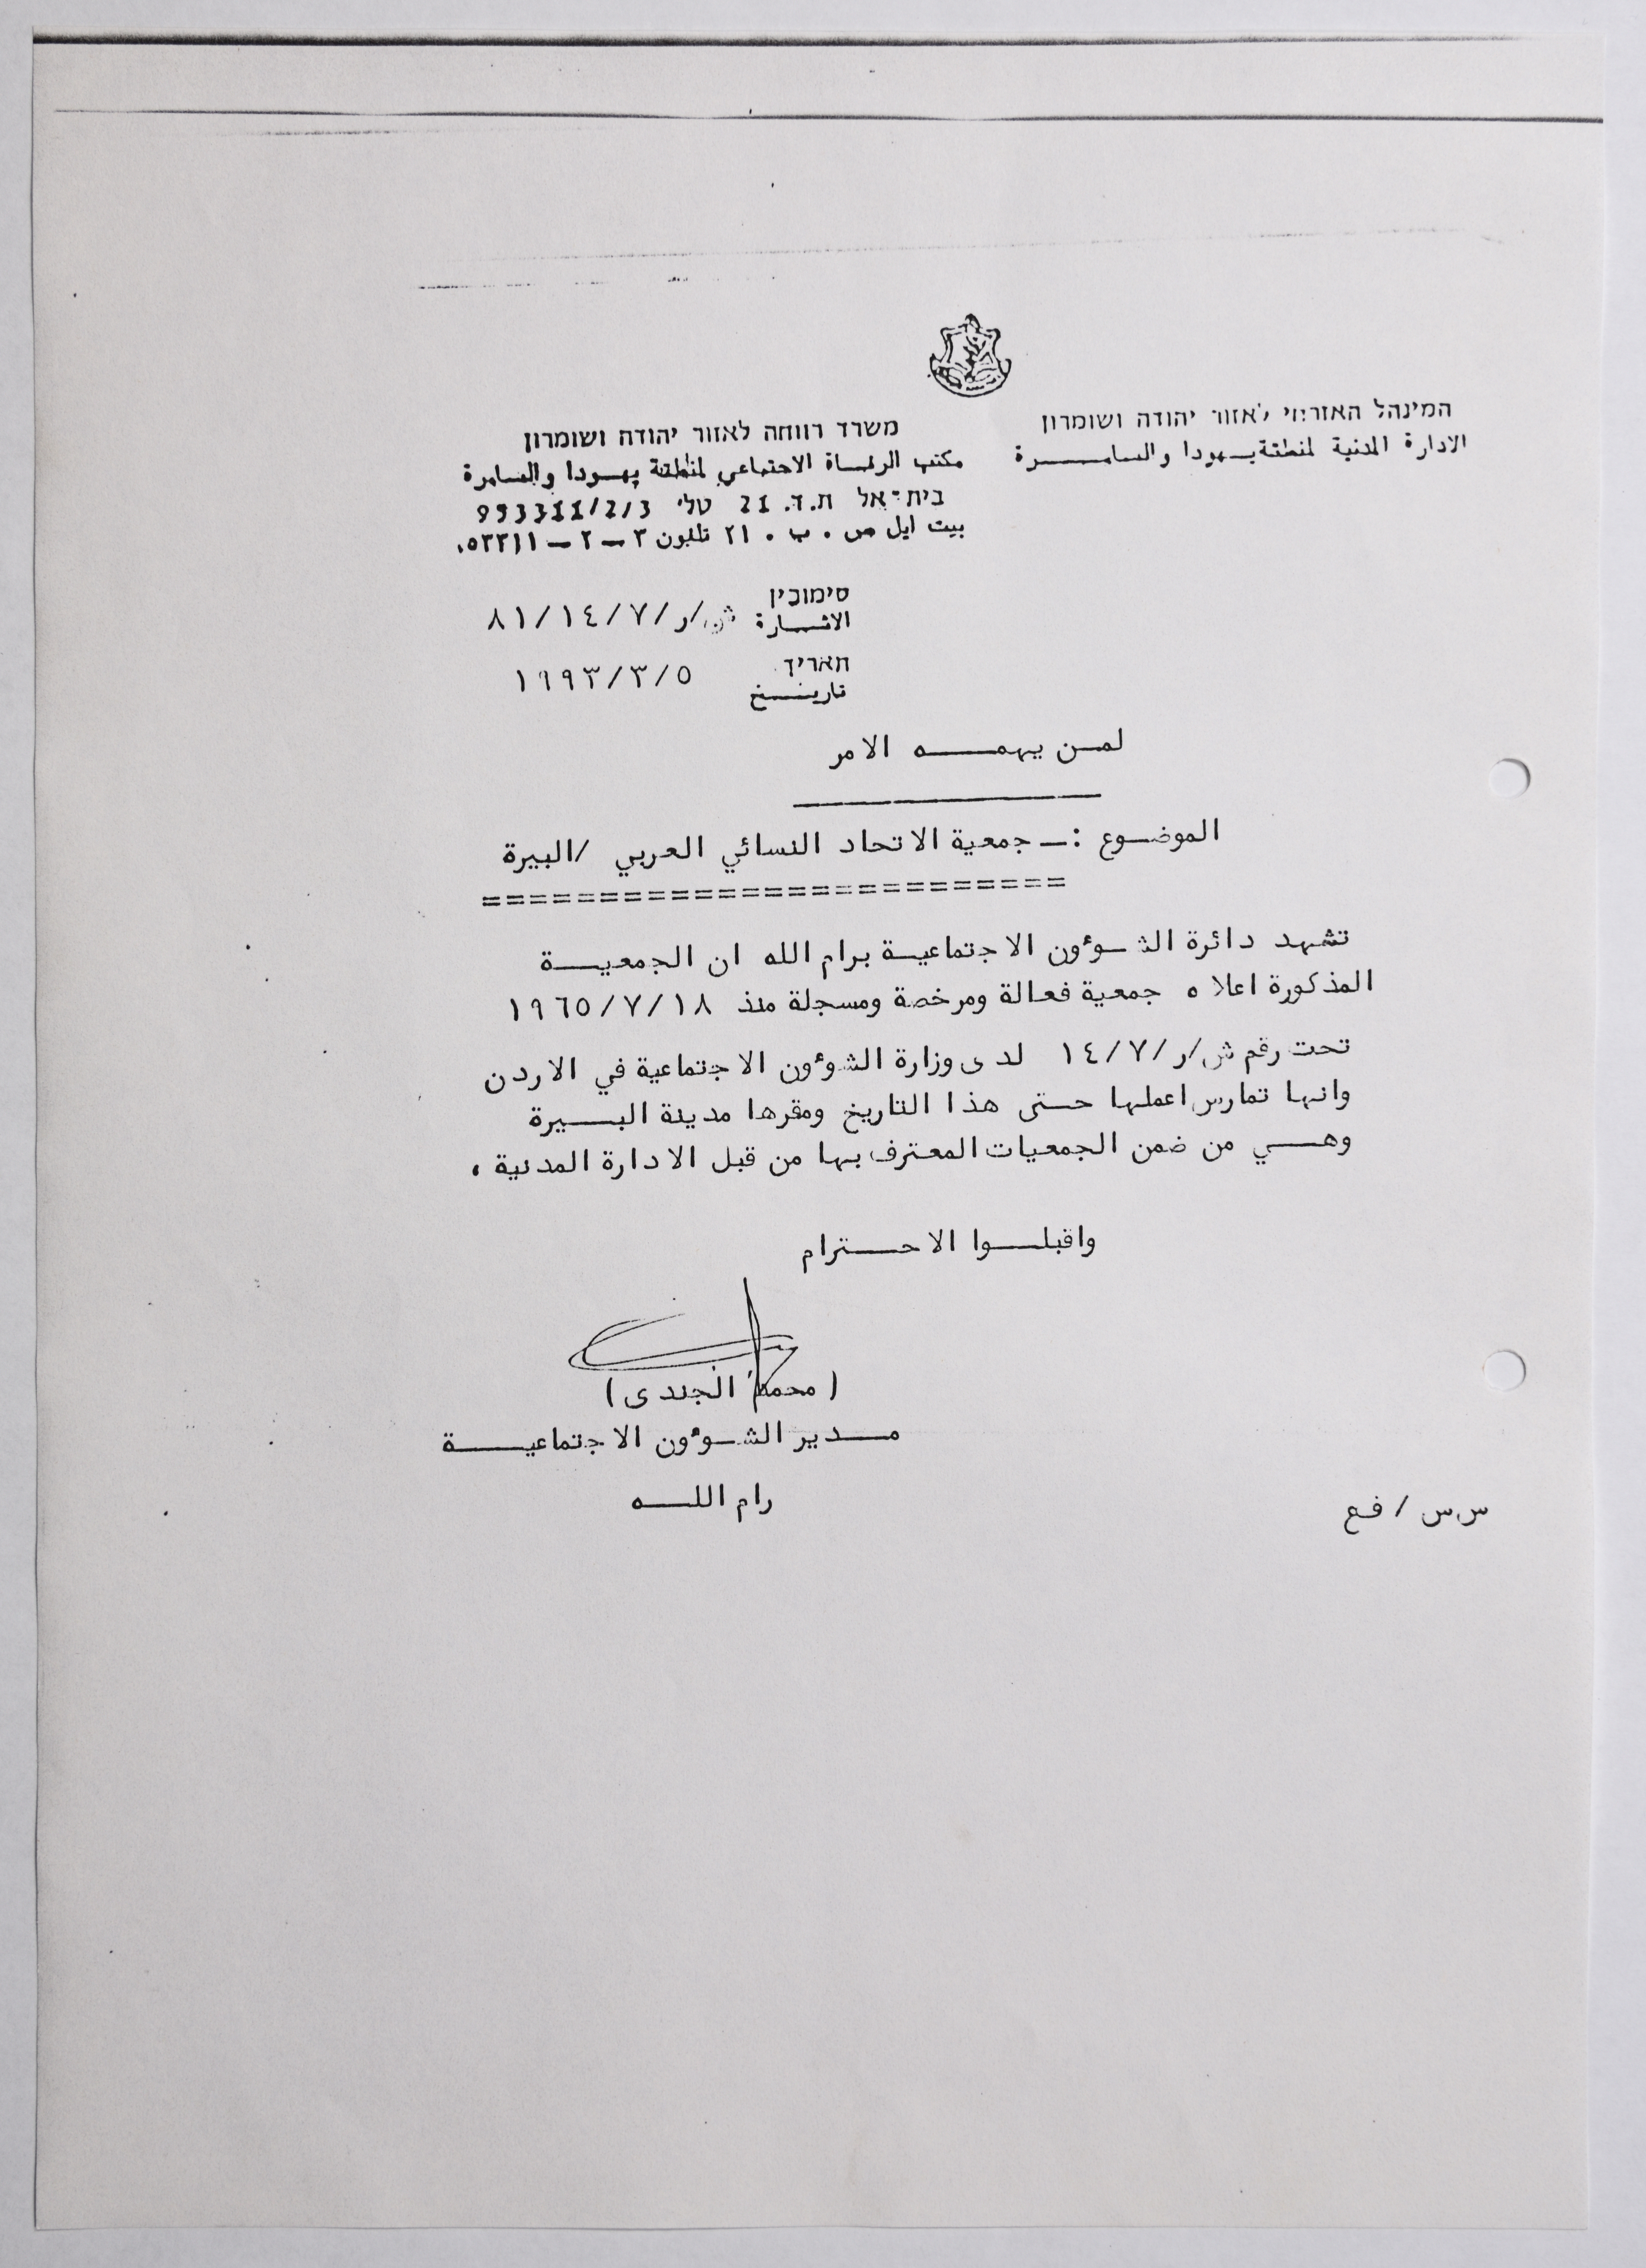 המינהל האזרחי לאזור יהודה ושומרון
الادارة المدنية لمنطقة يهودا والسامـــــرة
משרד רווחה לאזור יהודה ושומרון
مكتب الرفـاة الاجتماعي لمنطقة يهـودا والسامرة
בית-אל ת.ד. 21 טלי 953311/2/3
بيت ايل ص . ب . ٢١ تلفون ٣ ــ ٢ ــ ٩٥٣٣١١
סימוכין
الاشـــارة ش/ر/٨١/١٤/٧
תאריך
تاريـــخ ١٩٩٣/٣/٥
لمـن يهمــــه الامر
الموضـوع :ــ جمعية الاتحاد النسائي العربي /البيرة
=========================
تشهد دائرة الشـوٴون الاجتماعيـة برام الله ان الجمعيـــة
المذكورة اعلاه جمعية فعالة ومرخصة ومسجلة منذ ١٩٦٥/٧/١٨
تحت رقم ش/ر/١٤/٧ لدى وزارة الشوٴون الاجتماعية في الاردن
وانها تمارس اعملها حـتى هذا التاريخ ومقرها مدينة البـــيرة
وهـــي من ضمن الجمعيات المعترف بها من قبل الادارة المدنية .
واقبلـــوا الاحـــترام
(محمد الجندى)
مـــدير الشـوٴون الاجتماعيـــــة
رام اللـــه
س.س / فـع